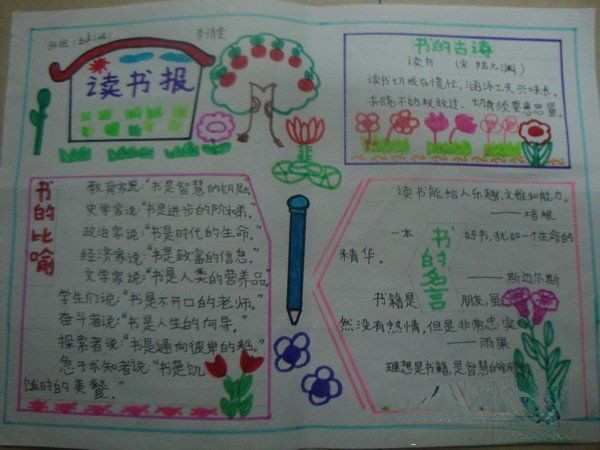 李倩雯
读书报
书的古诗
读书 （宋 陆九渊）
读书切戒在慌忙，涵泳工夫兴味长，
未晓不妨权放过，切身须要急思量。
书的比喻
教育家说："书是智慧的钥匙。"
史学家说："书是进步的阶梯。"
政治家说："书是时代的生命。"
经济家说："书是致富的信息。"
文学家说："书是人类的营养品。"
学生们说："书是不开口的老师。"
奋斗者说："书是人生的向导。"
探索者说："书是通向彼岸的船。"
急于求知者说："书是饥
饿时的美餐。"
书的名言
读书能给人乐趣,文雅和能力。
——培根
一本 好书,犹如一个生命的
精华。
——斯迈尔斯
书籍是 朋友,虽
然没有热情，但是非常忠实
——雨果
理想是书籍,是智慧的